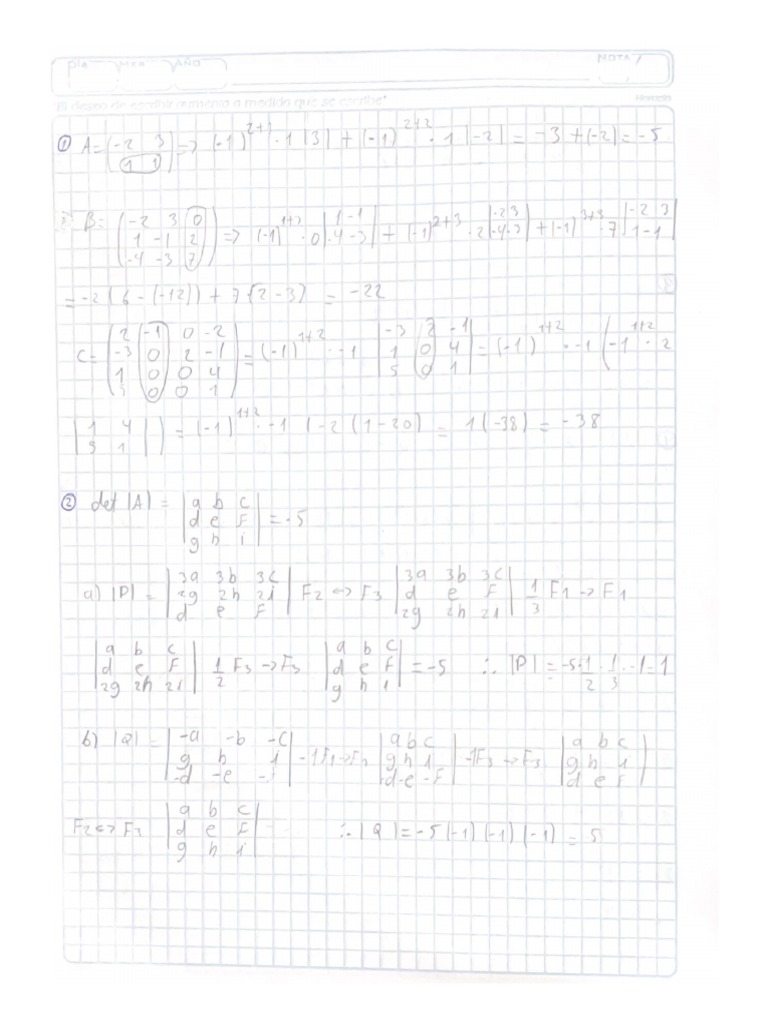 Día Mes Año NOTA
El deseo de escribir aumenta a medida que se escribe"
① A = (-2 3
1 1) => (-1)^{2+1} · 1 |3| + (-1)^{2+2} · 1 |-2| = -3 + (-2) = -5
B = (-2 3 0
1 -1 2
-4 -3 7) => (-1)^{1+3} · 0 |1 -1
-4 -3| + (-1)^{2+3} · 2 |-2 3
-4 -3| + (-1)^{3+3} · 7 |-2 3
1 -1|
= -2 (6 - (-12)) + 7 · (2 - 3) = -22
C = (2 -1 0 -2
-3 0 2 -1
1 0 0 4
5 0 0 1) = (-1)^{1+2} · -1 |-3 2 -1
1 0 4
5 0 1| = (-1)^{1+2} · -1 (-1^{1+2} · 2
|1 4
5 1|) = (-1)^{1+2} · -1 (-2 (1 - 20) = 1 (-38) = -38
② det |A| = |a b c
d e F
g h i| = -5
a) |P| = |3a 3b 3c
2g 2h 2i
d e F| F2 <-> F3 |3a 3b 3c
d e F
2g 2h 2i| 1/3 F1 -> F1
|a b c
d e F
2g 2h 2i| 1/2 F3 -> F3 |a b c
d e F
g h i| = -5 ∴ |P| = -5 · 1/2 · 1/3 · -1 = 1
b) |Q| = |-a -b -c
g h i
-d -e -F| -1F1 -> F1 |a b c
g h i
-d -e -F| -1F3 -> F3 |a b c
g h i
d e F|
F2 <=> F3 |a b c
d e F
g h i| ∴ |Q| = -5 (-1) (-1) (-1) = 5